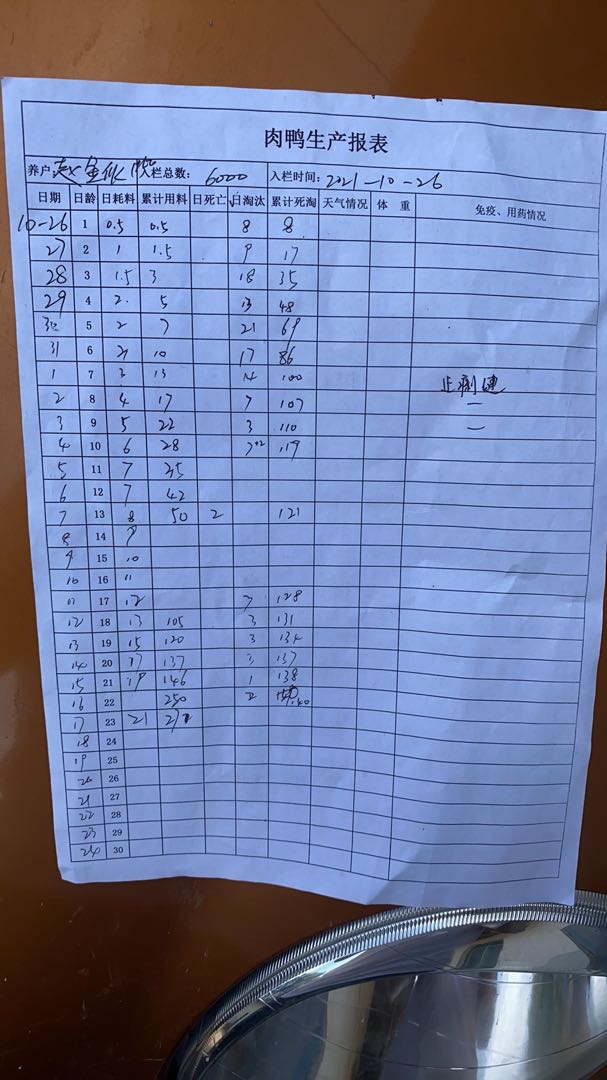 肉鸭生产报表
养户 入栏总数: 6000 入栏时间: 2021-10-26
日期 日龄 日耗料 累计用料 日死亡 日淘汰 累计死淘 天气情况 体 重 免疫、用药情况
10-26 1 0.5 0.5 8 8
27 2 1 1.5 9 17
28 3 1.5 3 18 35
29 4 2 5 13 48
30 5 2 7 21 69
31 6 10 17 86
1 7 3 13 14 100 止痢
2 8 4 17 7 107 一
3 9 5 22 3 110 一
4 10 6 28 119
5 11 7 35
6 12 7 42
7 13 8 50 2 121
8 14 9
9 15 10
10 16 11
11 17 12 7 128
12 18 13 105 3 131
13 19 15 120 3 134
14 20 17 137 3 137
15 21 19 146 1 138
16 22 250 2 140
17 23 21
18 24
19 25
20 26
21 27
22 28
23 29
24 30